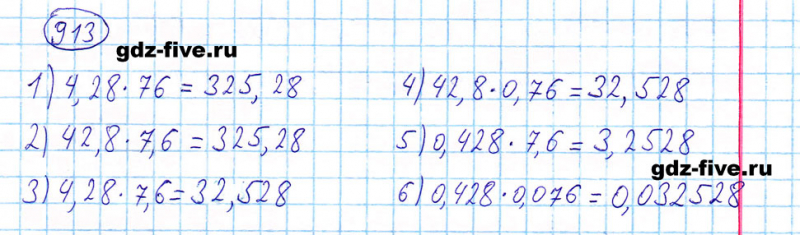 913
gdz-five.ru
1) 4,28 · 76 = 325,28
2) 42,8 · 7,6 = 325,28
3) 4,28 · 7,6 = 32,528
4) 42,8 · 0,76 = 32,528
5) 0,428 · 7,6 = 3,2528
gdz-five.ru
6) 0,428 · 0,076 = 0,032528